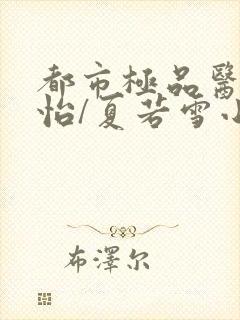 都市極品醫
怡/夏若雪小
布澤尔